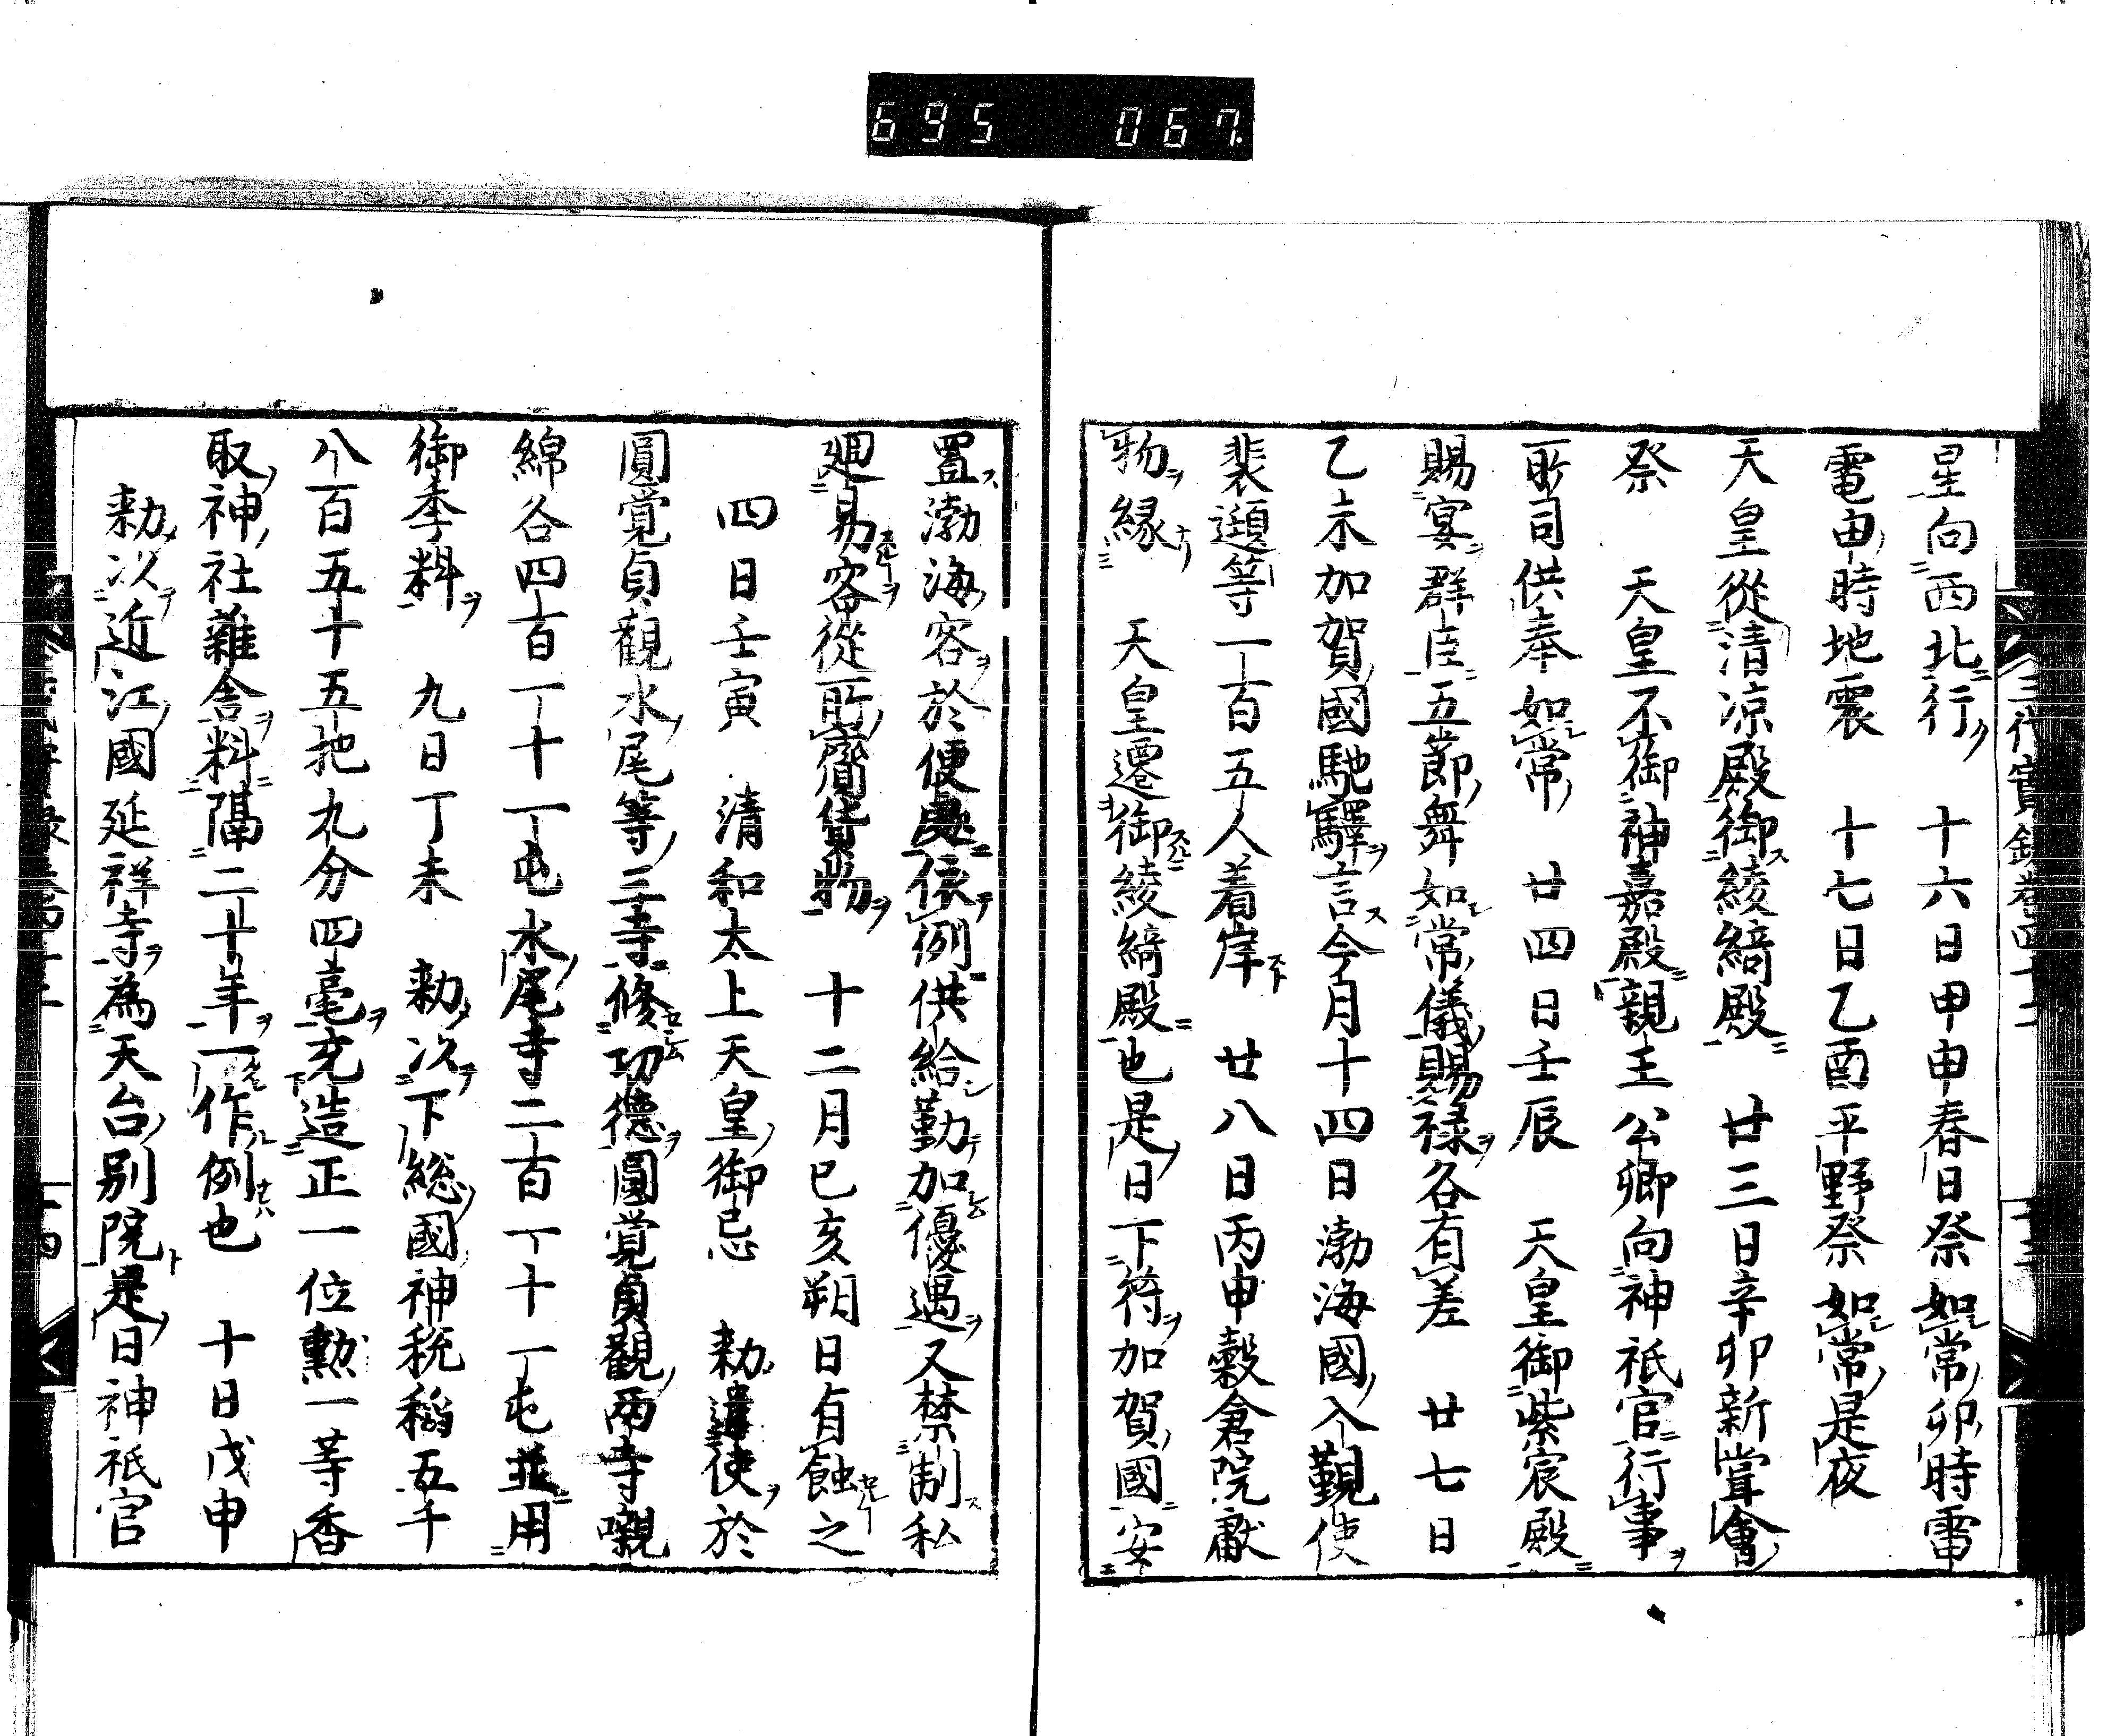 695 067
三代實録卷四十二
星向西北行 十六日甲申春日祭如常卯時雷
電申時地震 十七日乙酉平野祭如常是夜
天皇從清凉殿御綾綺殿 廿三日辛卯新嘗會
祭 天皇不御神嘉殿親王公卿向神祇官行事
所司供奉如常 廿四日壬辰 天皇御紫宸殿
賜宴群臣五節舞如常儀賜禄各有差 廿七日
乙未加賀國馳驛言今月十四日渤海國入覲使
裴頲等一百五人着岸 廿八日丙申穀倉院獻
物縁 天皇遷御綾綺殿也是日下符加賀國安
置渤海客於便處依例供給勤加優遇又禁制私
廻易客從所齎貨物 十二月己亥朔日有蝕之
四日壬寅 清和太上天皇御忌 勅遣使於
圓覺貞觀水尾等三寺修功德圓覺貞觀兩寺嚫
綿各四百一十一屯水尾寺二百一十一屯並用
御季料 九日丁未 勅以下総國神税稻五千
八百五十五把九分四毫充造正一位勲一等香
取神社雜舎料隔二十年一作例也 十日戊申
勅以近江國延祥寺為天台別院是日神祇官